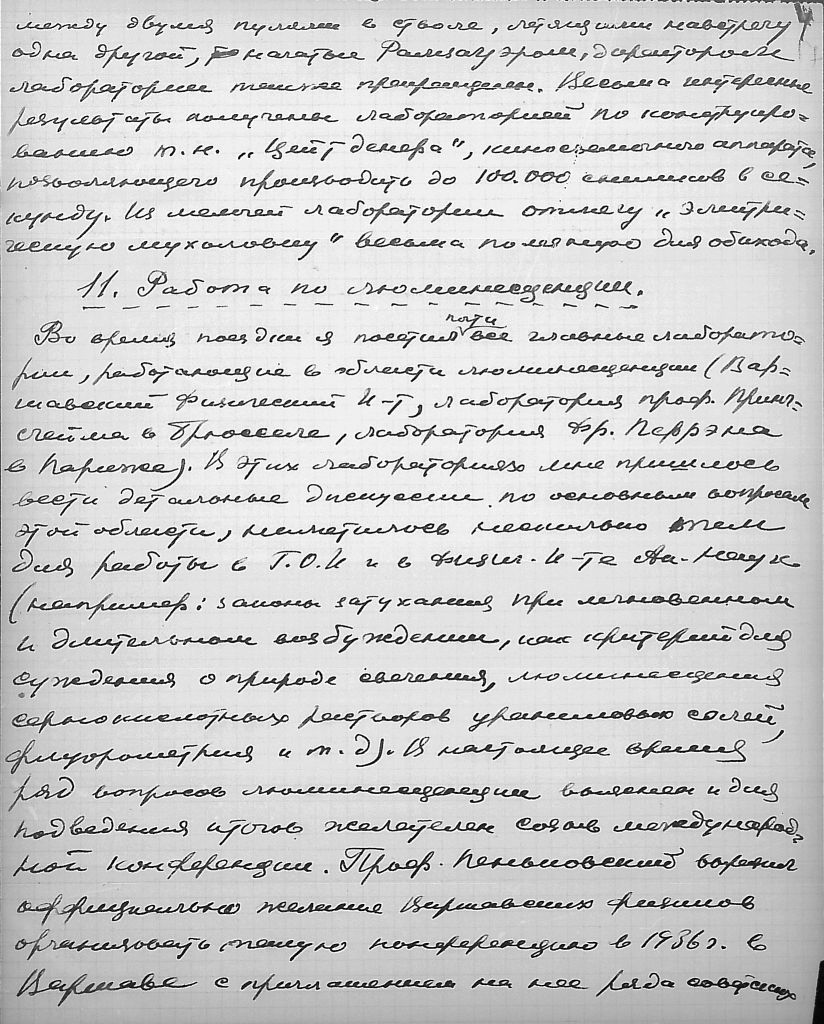 между двумя пулями в стволе, летящими навстречу
одна другой, начатые Рамзауэром, директором
лаборатории также прекращены. Весьма интересные
результаты получены лабораторией по конструиро-
ванию т.н. „Цейтденера", киносъемочного аппарата,
позволяющего производить до 100.000 снимков в се-
кунду. Из мелочей лаборатории отмечу „электри-
ческую мухоловку" весьма полезную для обихода.
11. Работа по люминесценции.
Во время поездки я посетил почти все главные лаборато-
рии, работающие в области люминесценции (Вар-
шавский Физический И-т, лаборатория проф. Принг-
сгейма в Брюсселе, лаборатория Фр. Перрэна
в Париже). В этих лабораториях мне пришлось
вести детальные дискуссии по основным вопросам
этой области, наметилось несколько тем
для работы в Г.О.И и в Физич. И-те Ак. Наук
(например: законы затухания при мгновенном
и длительном возбуждении, как критерий для
суждения о природе свечения, люминесценция
сернокислотных растворов ураниловых солей,
флуорометрия и т.д). В настоящее время
ряд вопросов люминесценции выяснен и для
подведения итогов желателен созыв международ-
ной конференции. Проф. Пеньковский выразил
оффициально желание Варшавских физиков
организовать такую конференцию в 1936г. в
Варшаве с приглашением на нее ряда советских